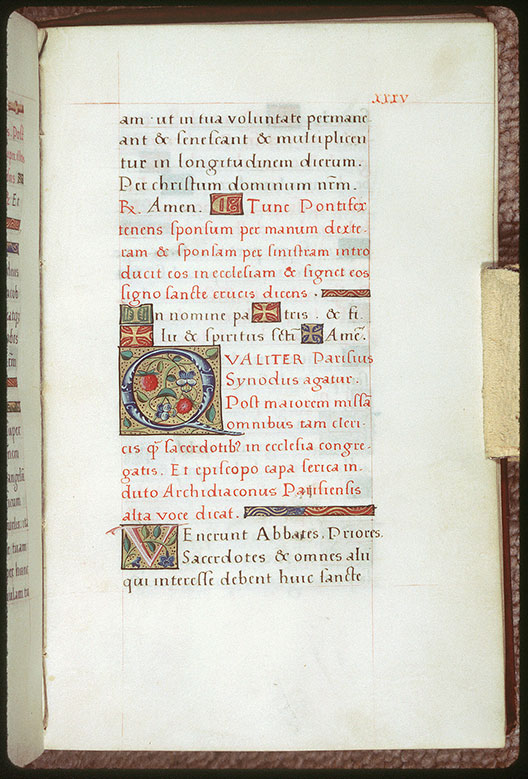 XXXV
am · ut in tua voluntate permane
ant & senescant & multiplicen
tur in longitudinem dierum.
Per christum dominum nr̄m.
R. Amen. Tunc Pontifex
tenens sponsum per manum dexte-
ram & sponsam per sinistram intro
ducit eos in ecclesiam & signet eos
signo sancte crucis dicens .
In nomine pa ✠ tris . & fi
✠ lii & spiritus scti ✠ Amē.
QVALITER Parisius
Synodus agatur.
Post maiorem missā
omnibus tam cleri-
cis q̄ sacerdotibꝫ in ecclesia congre-
gatis. Et episcopo capa serica in-
duto Archidiaconus Parisiensis
alta voce dicat.
VEnerunt Abbates, Priores,
Sacerdotes & omnes alii
qui interesse debent huic sancte